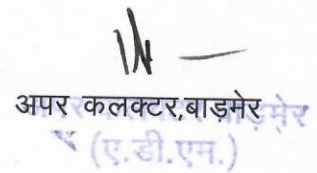 अपर कलक्टर,बाड़मेर
बाड़मेर
(ए.डी.एम.)